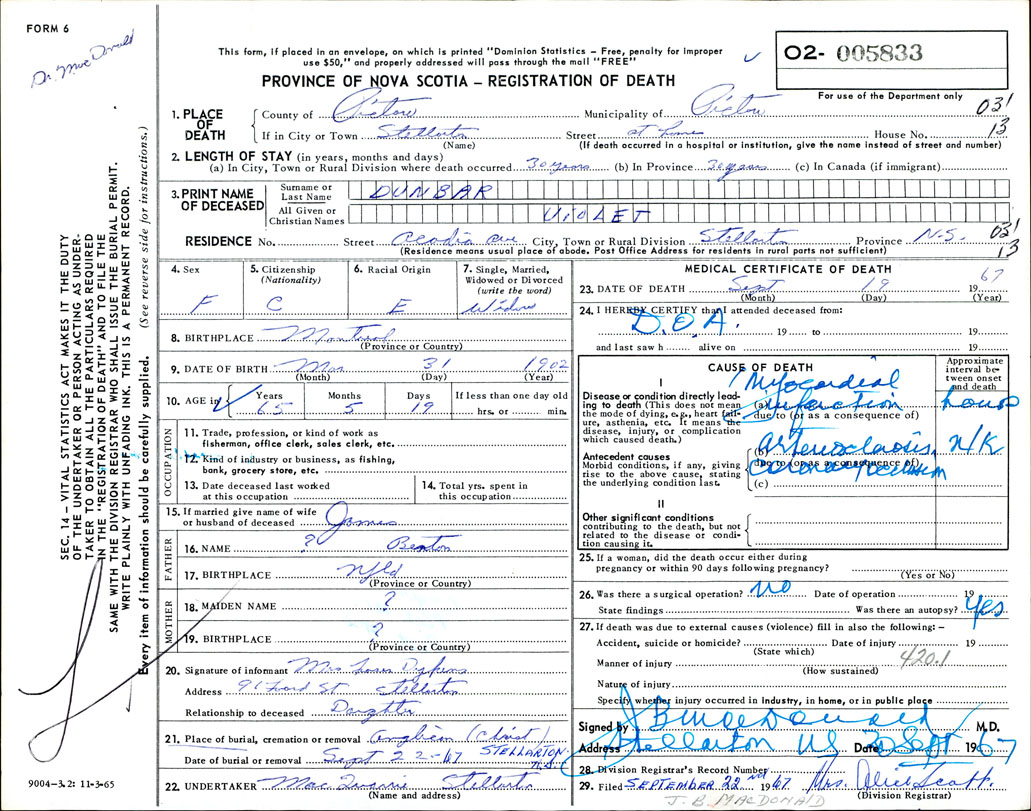 FORM 6
Dr. MacDonald
This form, if placed in an envelope, on which is printed "Dominion Statistics – Free, penalty for improper
use $50," and properly addressed will pass through the mail "FREE"
O2- 005833
PROVINCE OF NOVA SCOTIA – REGISTRATION OF DEATH
For use of the Department only
1. PLACE OF DEATH
County of Pictou Municipality of Pictou 031
If in City or Town Stellarton Street at home House No. 13
(Name) (If death occurred in a hospital or institution, give the name instead of street and number)
2. LENGTH OF STAY (in years, months and days)
(a) In City, Town or Rural Division where death occurred 30 years (b) In Province 30 years (c) In Canada (if immigrant)
3. PRINT NAME OF DECEASED
Surname or Last Name DUNBAR
All Given or Christian Names VIOLET
RESIDENCE No. Street Acadia Ave City, Town or Rural Division Stellarton Province N.S. 031
(Residence means usual place of abode. Post Office Address for residents in rural parts not sufficient) 13
4. Sex F
5. Citizenship (Nationality) C
6. Racial Origin E
7. Single, Married, Widowed or Divorced (write the word) Widow
8. BIRTHPLACE Montreal
(Province or Country)
9. DATE OF BIRTH Mar 31 1902
(Month) (Day) (Year)
10. AGE in Years 65 Months 5 Days 19 If less than one day old hrs. or min.
OCCUPATION
11. Trade, profession, or kind of work as
fisherman, office clerk, sales clerk, etc.
12. Kind of industry or business, as fishing,
bank, grocery store, etc.
13. Date deceased last worked
at this occupation
14. Total yrs. spent in
this occupation
15. If married give name of wife
or husband of deceased James
FATHER
16. NAME ? Benton
17. BIRTHPLACE Nfld
(Province or Country)
MOTHER
18. MAIDEN NAME ?
19. BIRTHPLACE ?
(Province or Country)
20. Signature of informant Mrs Dykens
Address 91 Ford St Stellarton
Relationship to deceased Daughter
21. Place of burial, cremation or removal Anglican (Christ) STELLARTON N.S.
Date of burial or removal Sept 22-67
22. UNDERTAKER Stellarton
(Name and address)
MEDICAL CERTIFICATE OF DEATH
23. DATE OF DEATH Sept 19 19 67
(Month) (Day) (Year)
24. I HEREBY CERTIFY that I attended deceased from:
D.O.A. 19 to 19
and last saw h alive on 19
CAUSE OF DEATH
Approximate interval between onset and death
I
Disease or condition directly leading to death (This does not mean
the mode of dying, e.g., heart failure, asthenia, etc. It means the
disease, injury, or complication
which caused death.)
(a) Myocardial infarction hours
due to (or as a consequence of)
Antecedent causes
Morbid conditions, if any, giving
rise to the above cause, stating
the underlying condition last.
(b) N/K
due to (or as a consequence of)
(c)
II
Other significant conditions
contributing to the death, but not
related to the disease or condition causing it.
25. If a woman, did the death occur either during
pregnancy or within 90 days following pregnancy?
(Yes or No)
26. Was there a surgical operation? NO Date of operation 19
State findings Was there an autopsy? Yes
27. If death was due to external causes (violence) fill in also the following: –
Accident, suicide or homicide? Date of injury 19
(State which) 420.1
Manner of injury
(How sustained)
Nature of injury
Specify whether injury occurred in industry, in home, or in public place
Signed by J B MacDonald M.D.
Address Stellarton NS Date 20 Sept 1967
28. Division Registrar's Record Number
29. Filed SEPTEMBER 22nd 1967 Mrs. Alice Scott
(Division Registrar)
J. B. MACDONALD
SEC. 14 – VITAL STATISTICS ACT MAKES IT THE DUTY
OF THE UNDERTAKER OR PERSON ACTING AS UNDER-
TAKER TO OBTAIN ALL THE PARTICULARS REQUIRED
IN THE "REGISTRATION OF DEATH" AND TO FILE THE
SAME WITH THE DIVISION REGISTRAR WHO SHALL ISSUE THE BURIAL PERMIT.
WRITE PLAINLY WITH UNFADING INK. THIS IS A PERMANENT RECORD.
Every item of information should be carefully supplied. (See reverse side for instructions.)
9004-3.2: 11-3-65